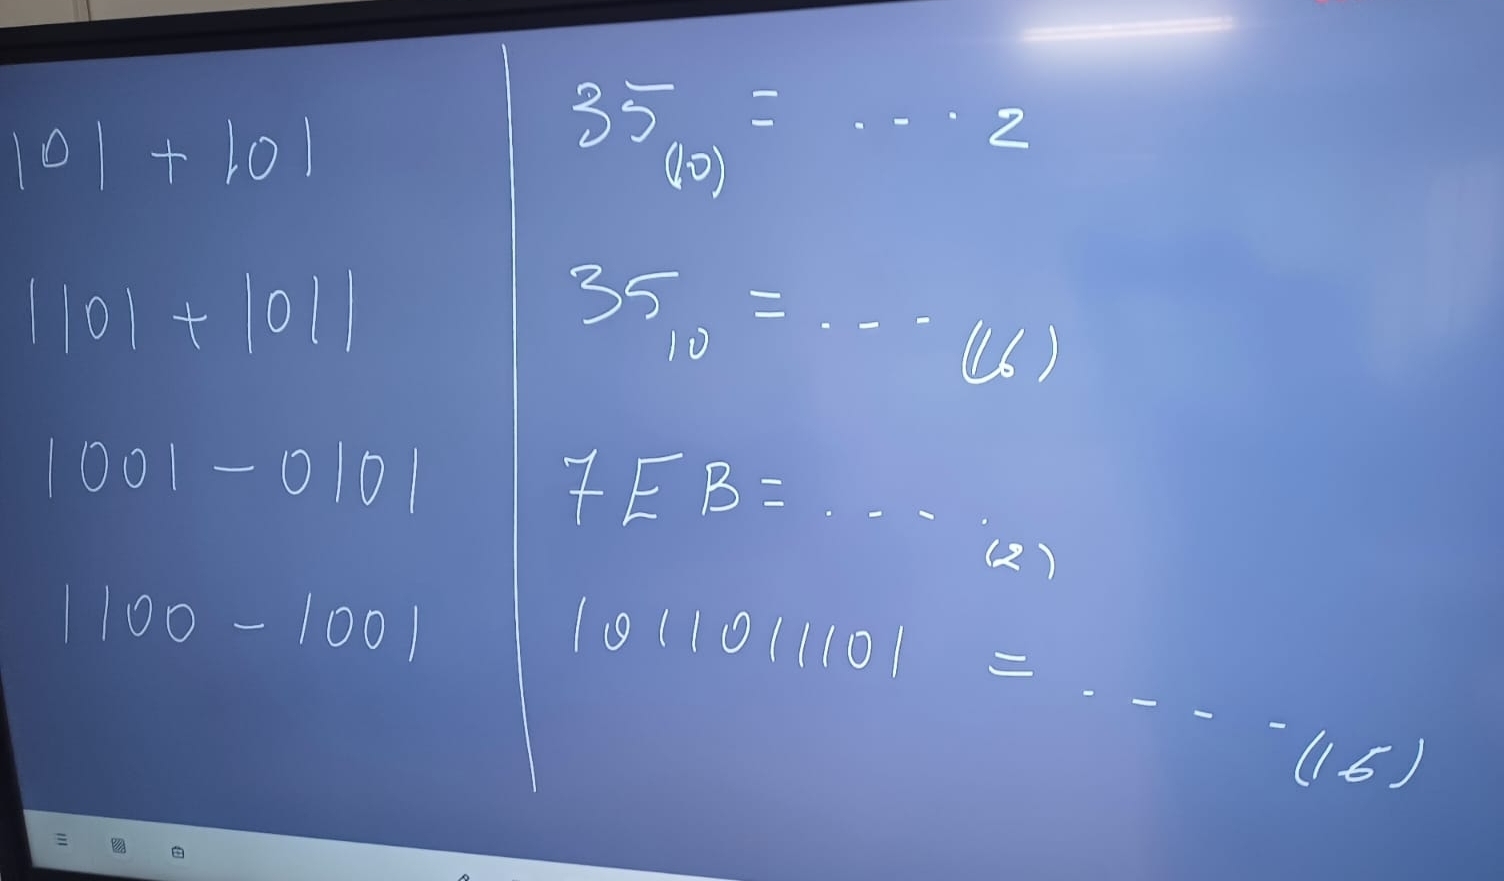 101 + 101
1101 + 1011
1001 - 0101
1100 - 1001
35(10) = .... 2
35 10 = .... (16)
7EB = .... (2)
10110111101 = .... (16)